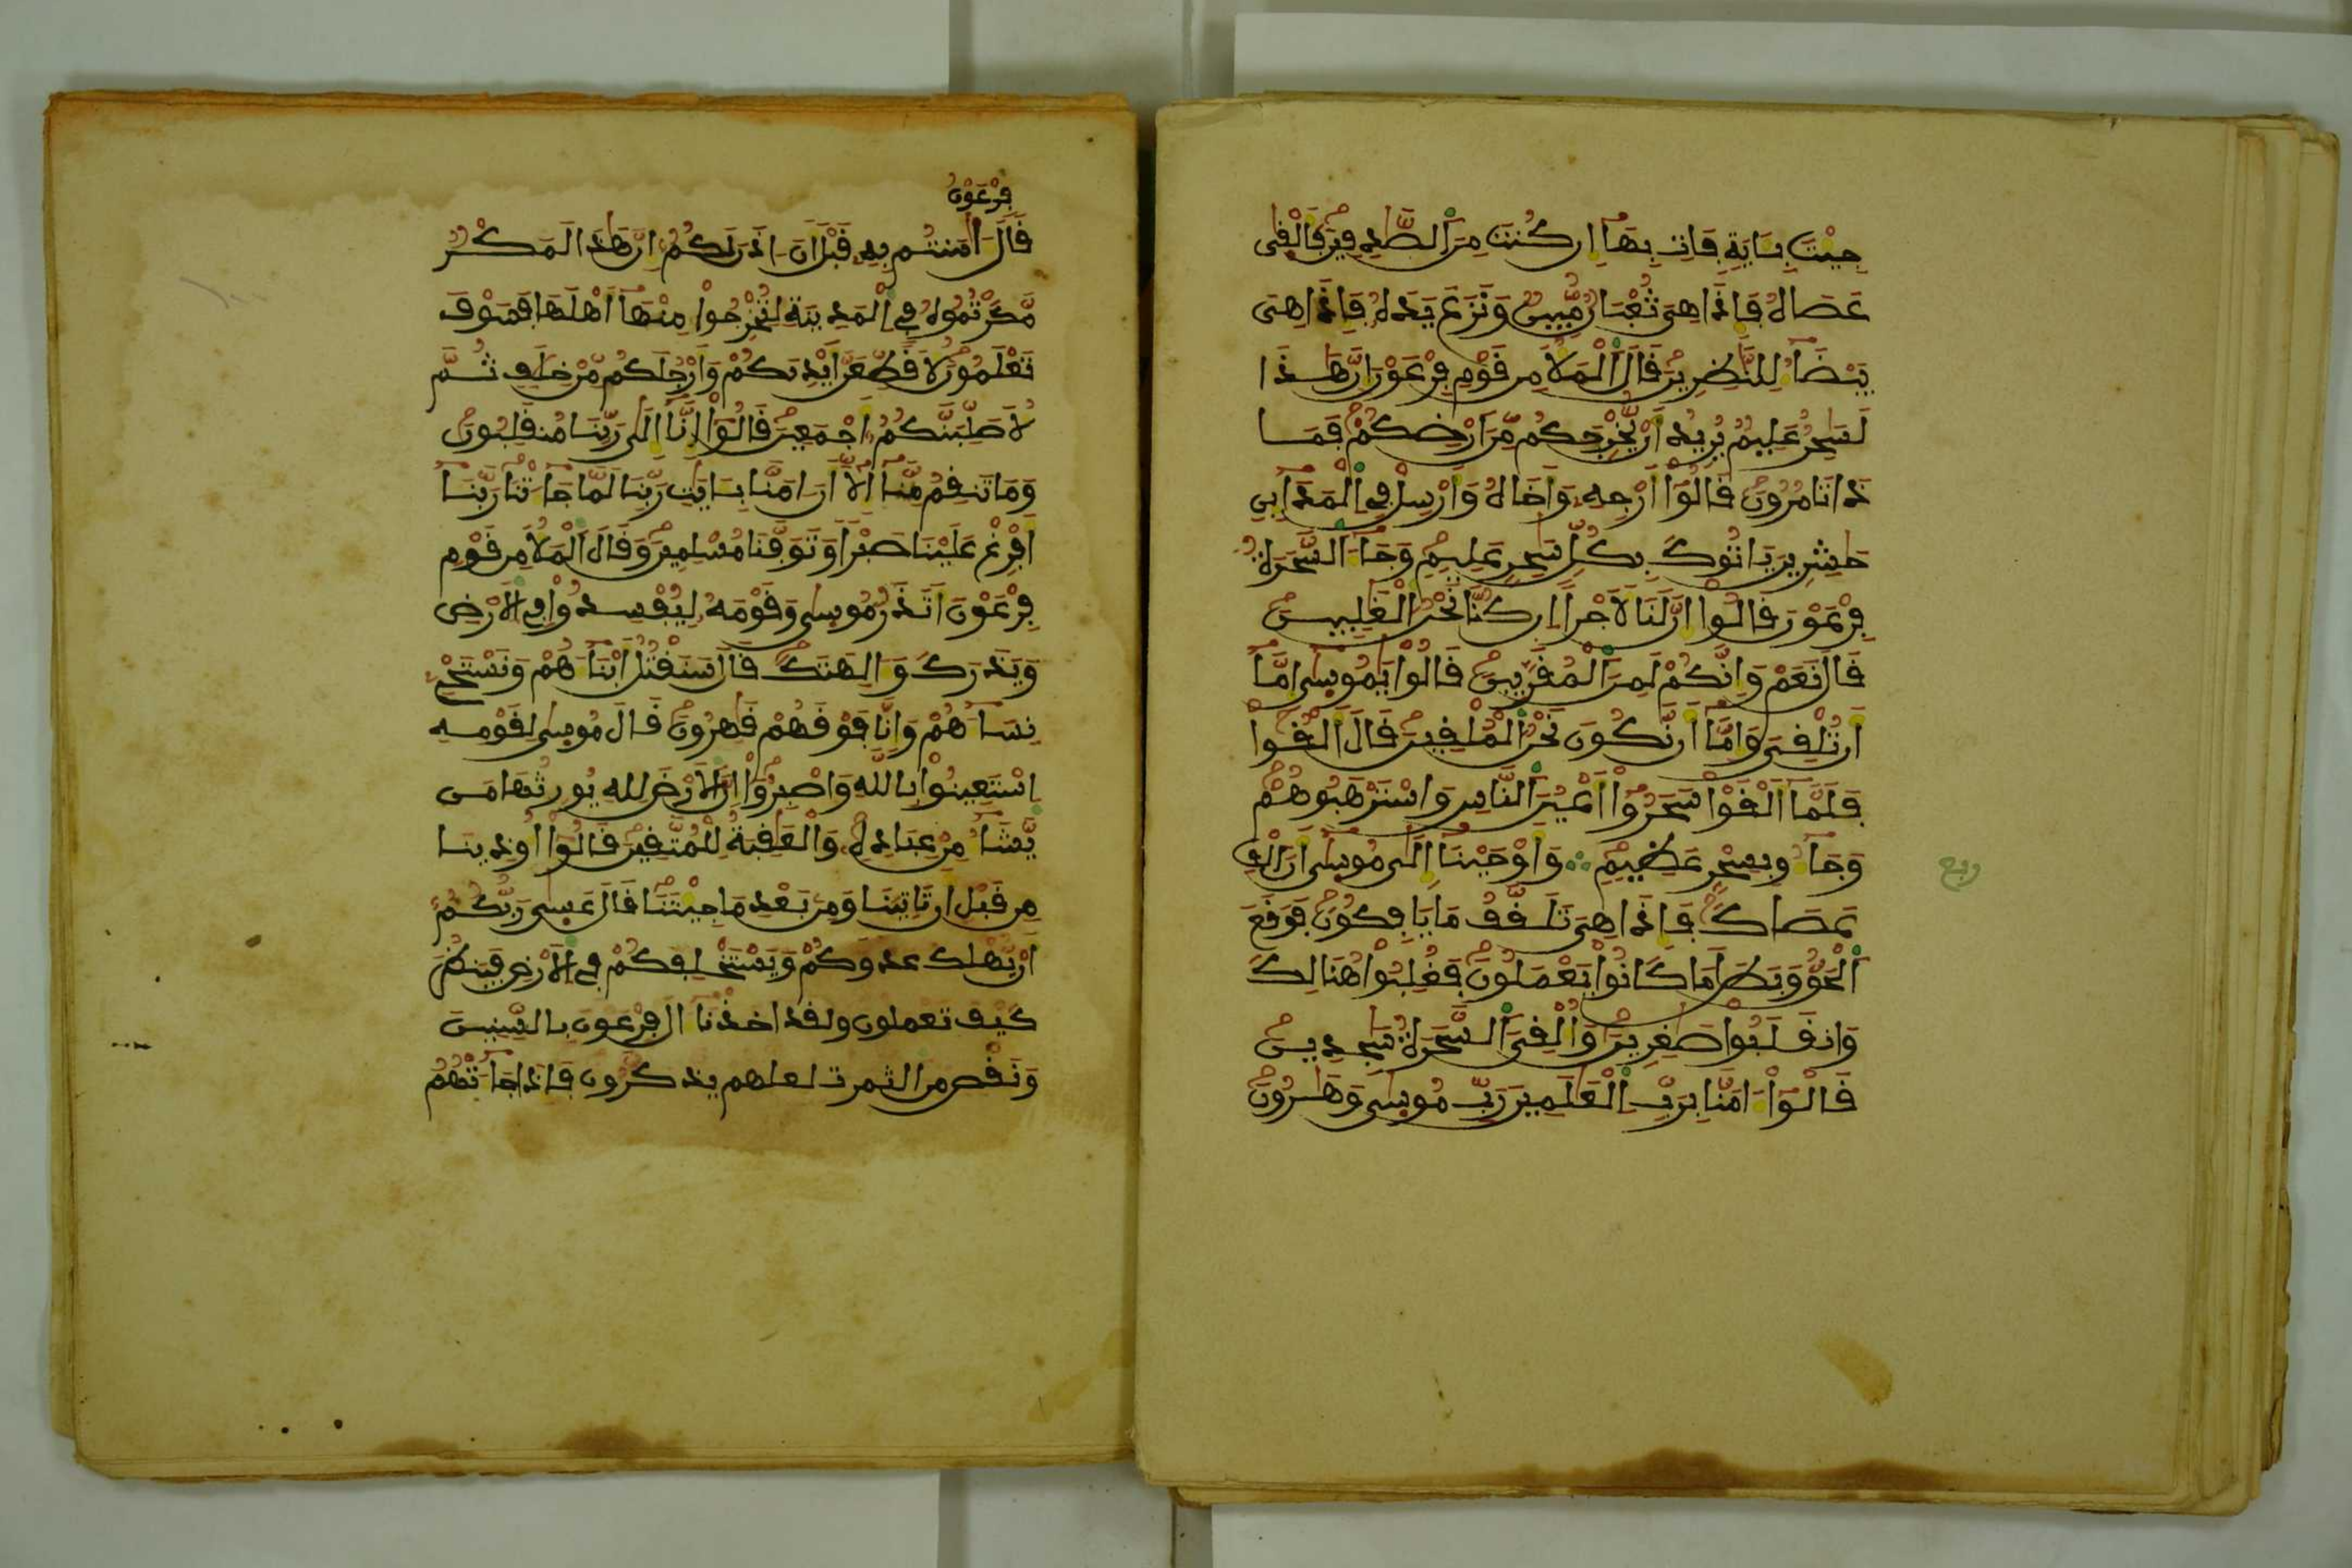 جِيْتَ بِـَٔايَةٍ فَاتِ بِهَا إِن كُنتَ مِنَ الصَّـٰدِقِينَ فَأَلْقَىٰ
عَصَاهُ فَإِذَا هِيَ ثُعْبَانٌ مُّبِينٌ وَنَزَعَ يَدَهُ فَإِذَا هِيَ
بَيْضَآءُ لِلنَّـٰظِرِينَ قَالَ الْمَلَأُ مِن قَوْمِ فِرْعَوْنَ إِنَّ هَـٰذَا
لَسَـٰحِرٌ عَلِيمٌ يُرِيدُ أَنْ يُّخْرِجَكُم مِّنَ ارْضِكُمْ فَمَا
ذَا تَامُرُونَ قَالُوٓاْ أَرْجِهِ وَأَخَاهُ وَأَرْسِلْ فِي الْمَدَآئِنِ
حَـٰشِرِينَ يَاتُوكَ بِكُلِّ سَـٰحِرٍ عَلِيمٍ وَجَآءَ السَّحَرَةُ
فِرْعَوْنَ قَالُوٓاْ إِنَّ لَنَا لَأَجْراً إِن كُنَّا نَحْنُ الْغَـٰلِبِينَ
قَالَ نَعَمْ وَإِنَّكُمْ لَمِنَ الْمُقَرَّبِينَ قَالُواْ يَـٰمُوسَىٰٓ إِمَّآ
أَن تُلْقِيَ وَإِمَّآ أَن نَّكُونَ نَحْنُ الْمُلْقِينَ قَالَ أَلْقُواْ
فَلَمَّآ أَلْقَوْاْ سَحَرُوٓاْ أَعْيُنَ النَّاسِ وَاسْتَرْهَبُوهُمْ
وَجَآءُو بِسِحْرٍ عَظِيمٍ ۞ وَأَوْحَيْنَآ إِلَىٰ مُوسَىٰٓ أَنَ الْقِ
ربع
عَصَاكَ فَإِذَا هِيَ تَلَقَّفُ مَا يَافِكُونَ فَوَقَعَ
الْحَقُّ وَبَطَلَ مَا كَانُواْ يَعْمَلُونَ فَغُلِبُواْ هُنَالِكَ
وَانقَلَبُواْ صَـٰغِرِينَ وَأُلْقِيَ السَّحَرَةُ سَـٰجِدِينَ
قَالُوٓاْ ءَامَنَّا بِرَبِّ الْعَـٰلَمِينَ رَبِّ مُوسَىٰ وَهَـٰرُونَ
فِرْعَوْنُ
قَالَ ءَامَنتُم بِهِ قَبْلَ أَنَ اذَنَ لَكُمُ إِنَّ هَـٰذَا لَمَكْرٌ
مَّكَرْتُمُوهُ فِي الْمَدِينَةِ لِتُخْرِجُواْ مِنْهَآ أَهْلَهَا فَسَوْفَ
تَعْلَمُونَ لَأُقَطِّعَنَّ أَيْدِيَكُمْ وَأَرْجُلَكُم مِّنْ خِلَـٰفٍ ثُمَّ
لَأُصَلِّبَنَّكُمُ أَجْمَعِينَ قَالُوٓاْ إِنَّآ إِلَىٰ رَبِّنَا مُنقَلِبُونَ
وَمَا تَنقِمُ مِنَّآ إِلَّآ أَنَ امَنَّا بِـَٔايَـٰتِ رَبِّنَا لَمَّا جَآءَتْنَا رَبَّنَآ
أَفْرِغْ عَلَيْنَا صَبْراً وَتَوَفَّنَا مُسْلِمِينَ وَقَالَ الْمَلَأُ مِن قَوْمِ
فِرْعَوْنَ أَتَذَرُ مُوسَىٰ وَقَوْمَهُ لِيُفْسِدُواْ فِي الْأَرْضِ
وَيَذَرَكَ وَءَالِهَتَكَ قَالَ سَنَقْتُلُ أَبْنَآءَهُمْ وَنَسْتَحْيِ
نِسَآءَهُمْ وَإِنَّا فَوْقَهُمْ قَـٰهِرُونَ قَالَ مُوسَىٰ لِقَوْمِهِ
اسْتَعِينُواْ بِاللَّهِ وَاصْبِرُوٓاْ إِنَّ الْأَرْضَ لِلهِ يُورِثُهَا مَن
يَّشَآءُ مِنْ عِبَادِهِ وَالْعَـٰقِبَةُ لِلْمُتَّقِينَ قَالُوٓاْ أُوذِينَا
مِن قَبْلِ أَن تَاتِيَنَا وَمِن بَعْدِ مَا جِيْتَنَا قَالَ عَسَىٰ رَبُّكُمُ
أَنْ يُّهْلِكَ عَدُوَّكُمْ وَيَسْتَخْلِفَكُمْ فِي الْأَرْضِ فَيَنظُرَ
كَيْفَ تَعْمَلُونَ وَلَقَدَ اخَذْنَآ ءَالَ فِرْعَوْنَ بِالسِّنِينَ
وَنَقْصٍ مِّنَ الثَّمَرٰتِ لَعَلَّهُمْ يَذَّكَّرُونَ فَإِذَا جَآءَتْهُمُ